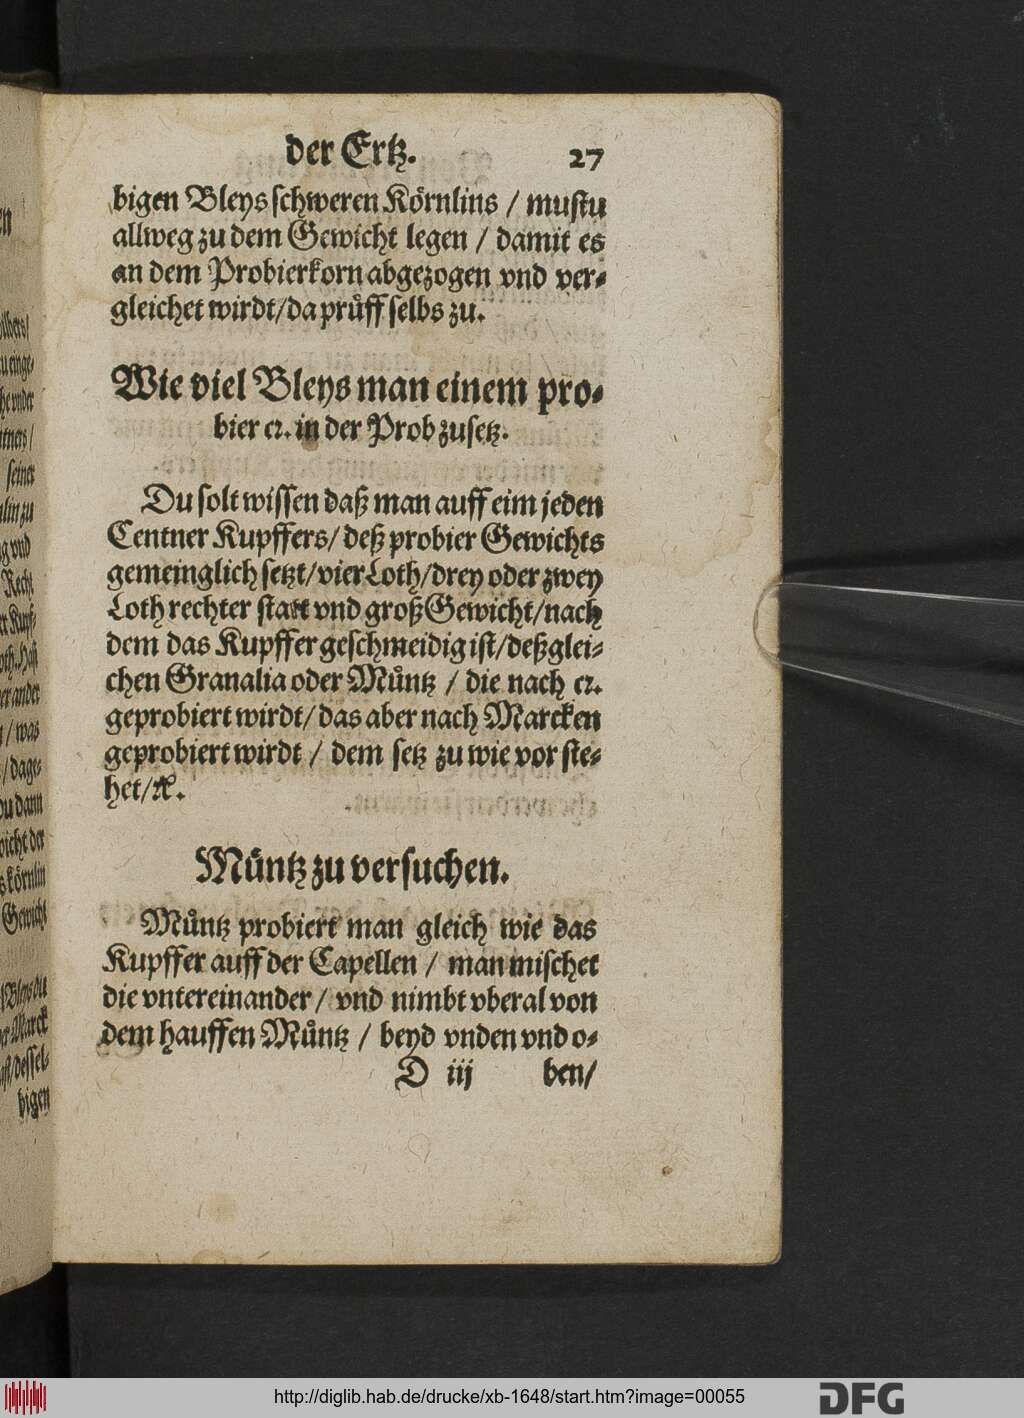 der Ertz. 27
bigen Bleys schweren Körnlins / mustu
allweg zu dem Gewicht legen / damit es
an dem Probierkorn abgezogen vnd ver-
gleichet wirdt/da prüff selbs zu.
Wie viel Bleys man einem pro-
bier cz. in der Prob zusetz.
Du solt wissen daß man auff eim jeden
Centner Kupffers/ deß probier Gewichts
gemeinglich setzt/vier Loth/drey oder zwey
Loth rechter statt vnd groß Gewicht/nach
dem das Kupffer geschmeidig ist/deßglei-
chen Granalia oder Müntz / die nach cz.
geprobiert wirdt/ das aber nach Marcken
geprobiert wirdt / dem setz zu wie vor ste-
het/ꝛc.
Müntz zu versuchen.
Müntz probiert man gleich wie das
Kupffer auff der Capellen / man mischet
die vntereinander/ vnd nimbt vberal von
dem hauffen Müntz / beyd vnden vnd o-
D iij ben/
seiner
vnd
Recht
/ was
bigen
http://diglib.hab.de/drucke/xb-1648/start.htm?image=00055
DFG